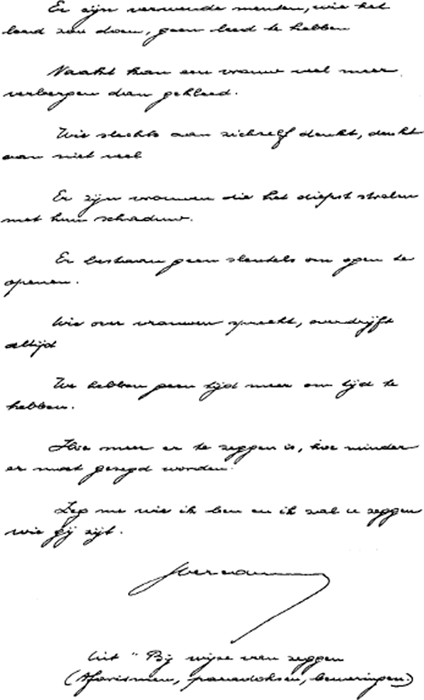 Er zijn verwende mensen, wie het
leed zou doen, geen leed te hebben
Naakt kan een vrouw veel meer
verbergen dan gekleed.
Wie slechts aan zichzelf denkt, denkt
aan niet veel
Er zijn vrouwen die het diepst stralen
met hun schaduw.
Er bestaan geen sleutels om ogen te
openen.
Wie over vrouwen spreekt, overdrijft
altijd
We hebben geen tijd meer om tijd te
hebben.
Hoe meer er te zeggen is, hoe minder
er moet gezegd worden.
Zeg me wie ik ben en ik zal u zeggen
wie gij zijt.
Uit "Bij wijze van zeggen
(Aforismen, paradoksen, beweringen)